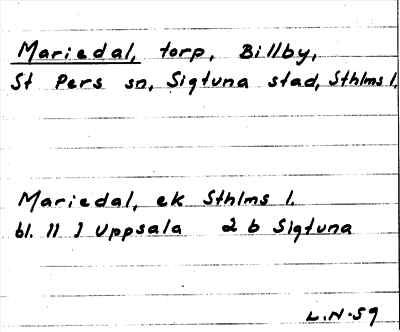 Mariedal, torp, Billby,
St Pers sn, Sigtuna stad, Sthlms l.
Mariedal, ek Sthlms l.
bl. 11 I Uppsala 2 b Sigtuna
L.N-59